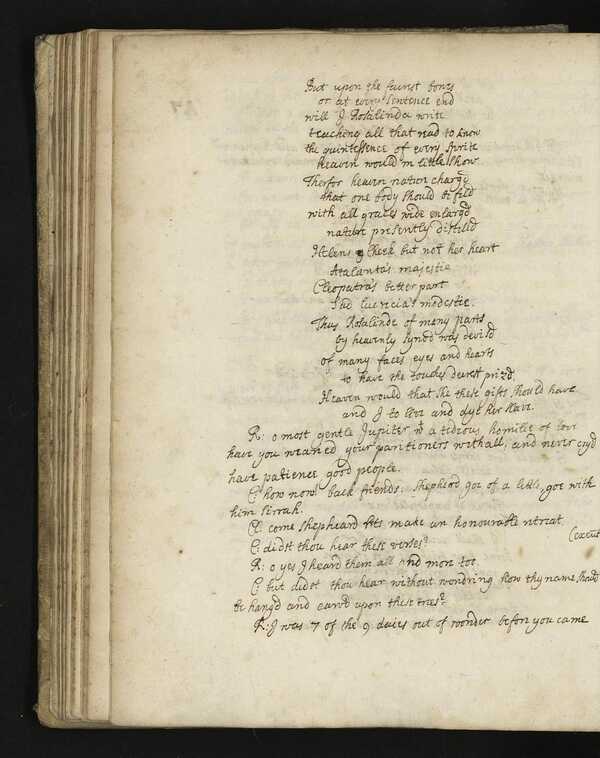 But upon the fairest bows
or at every sentence end
will I Rosalinda write
teaching all that read to know
the quintessence of every sprite
heaven would in little show.
Therfor heaven nature charg'd
that one body should be fild
with all graces wide enlargd
nature presently distilld
Helens cheek but not her heart
Atalanta's majestie
Cleopatra's better part
Sad lucricia's modestie.
Thus Rosalinde of many parts
by heavenly synod was devisd
of many faces, eyes and hearts
to have the touches dearest prizd,
Heaven would that she these gifts should have
and I to live and dye her slave.
R: o most gentle Jupiter wt a tedious homilie of love
have you wearied your paritioners withall, and never cryd
have patience good people.
C: how now! back friends: shepherd goe of a little, goe with
him sirrah.
Cl: come shepheard lets make an honourable retreat.
(exeut
C: didst thou hear these verses?
R: o yes I heard them all and more too.
C: but didst thou hear without wondring how thy name should
be hangd and carv'd upon these trees?
R: I was 7 of the 9 daies out of wonder before you came